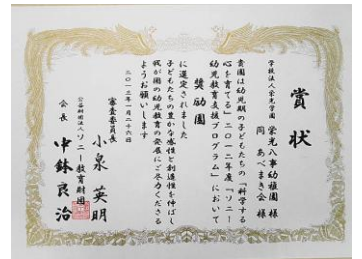 賞状
学校法人栄光学園
栄光八事幼稚園様
同 あべまき会様
貴園は幼児期の子どもたちの「科学する
心を育てる」二〇一二年度「ソニー
幼児教育支援プログラム」において
奨励園
に選定されました
子どもたちの豊かな感性と創造性を伸ばし
我が国の幼児教育の発展にご尽力くださる
ようお願いします
二〇一三年一月二十六日
審査委員長
小泉英明
公益財団法人ソニー教育財団
会長 中鉢良治